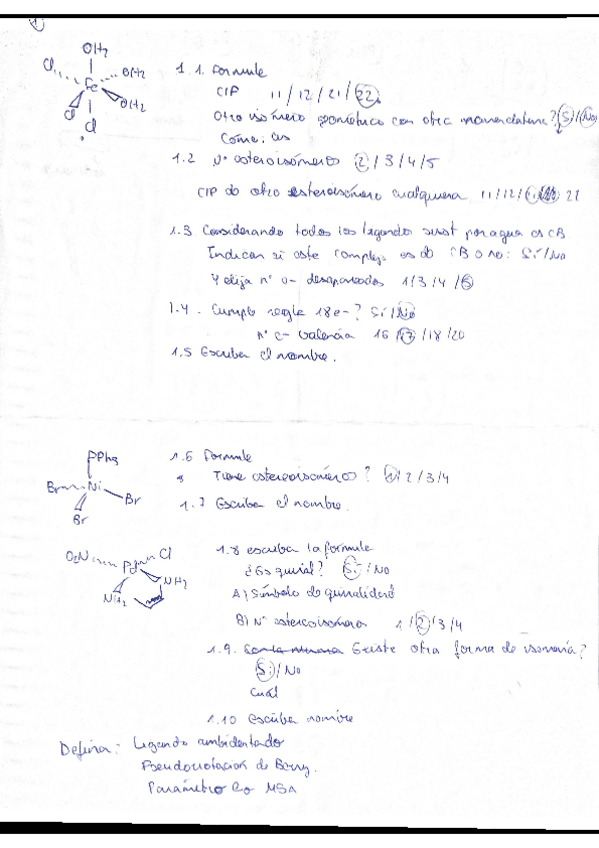 1
OH2
Cl
OH2
Fe
OH2
Cl
Cl
1.1. Formule
CIP 11/12/21/22.
Otro isómero geométrico con otra nomenclatura? Si/No
Como: cis
1.2 Nº estereoisómeros 2/3/4/5
CIP do otro estereoisómero cualquiera 11/12/ 22
1.3 Considerando todos los ligandos sust por agua es CB
Indican si este complejo es do CB o no: Si/No
Y elija nº e- desapareados 1/3/4/5
1.4. Cumple regla 18e-? Si/No
nº e- valencia 16/17/18/20
1.5 Escriba el nombre.
PPh3
Br Ni
Br
Br
1.6 Formule
Tiene estereoisómeros? 1/2/3/4
1.7 Escriba el nombre.
O2N Pd Cl
NH2
NH2
1.8 escriba la formula
¿Es quiral? Si/No
A) Símbolo de quiralidad
B) Nº estereoisómeros 1/2/3/4
1.9. Existe otra forma de isomería?
Si/No
Cual
1.10 escriba nombre
Defina: Ligando ambidentado
Pseudorotacion de Berry.
Parámetro MSA